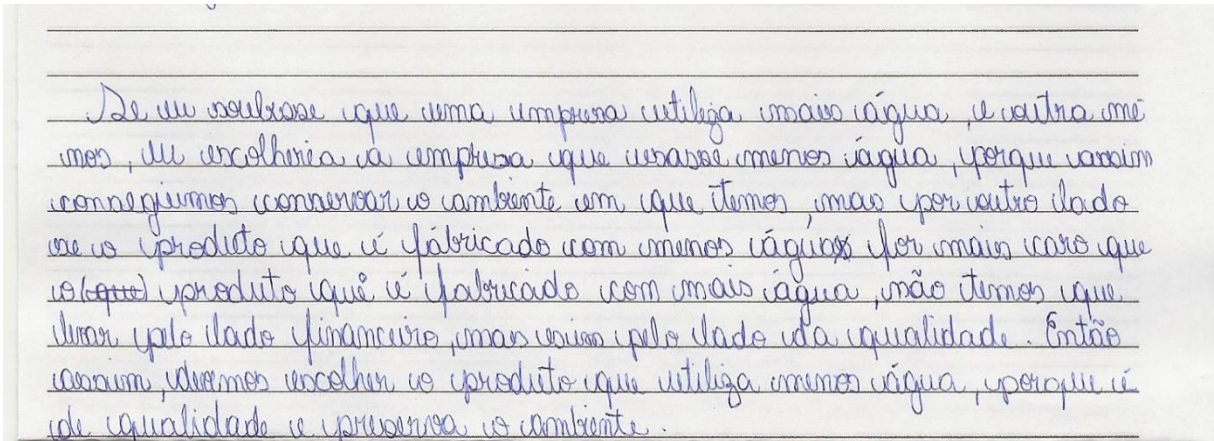 Se eu soubesse que uma empresa utiliza mais água, e outra me
nos, eu escolheria a empresa que usasse menos água, porque assim
consegiumos conservar o ambiente em que temos, mas por outro lado
se o produto que é fábricado com menos água for mais caro que
o (que) produto que é fabricado com mais água, não temos que
levar pelo lado financeiro, mas sim pelo lado da qualidade. Então
assim, devemos escolher o produto que utiliza menos água, porque é
de qualidade e preserva o ambiente.